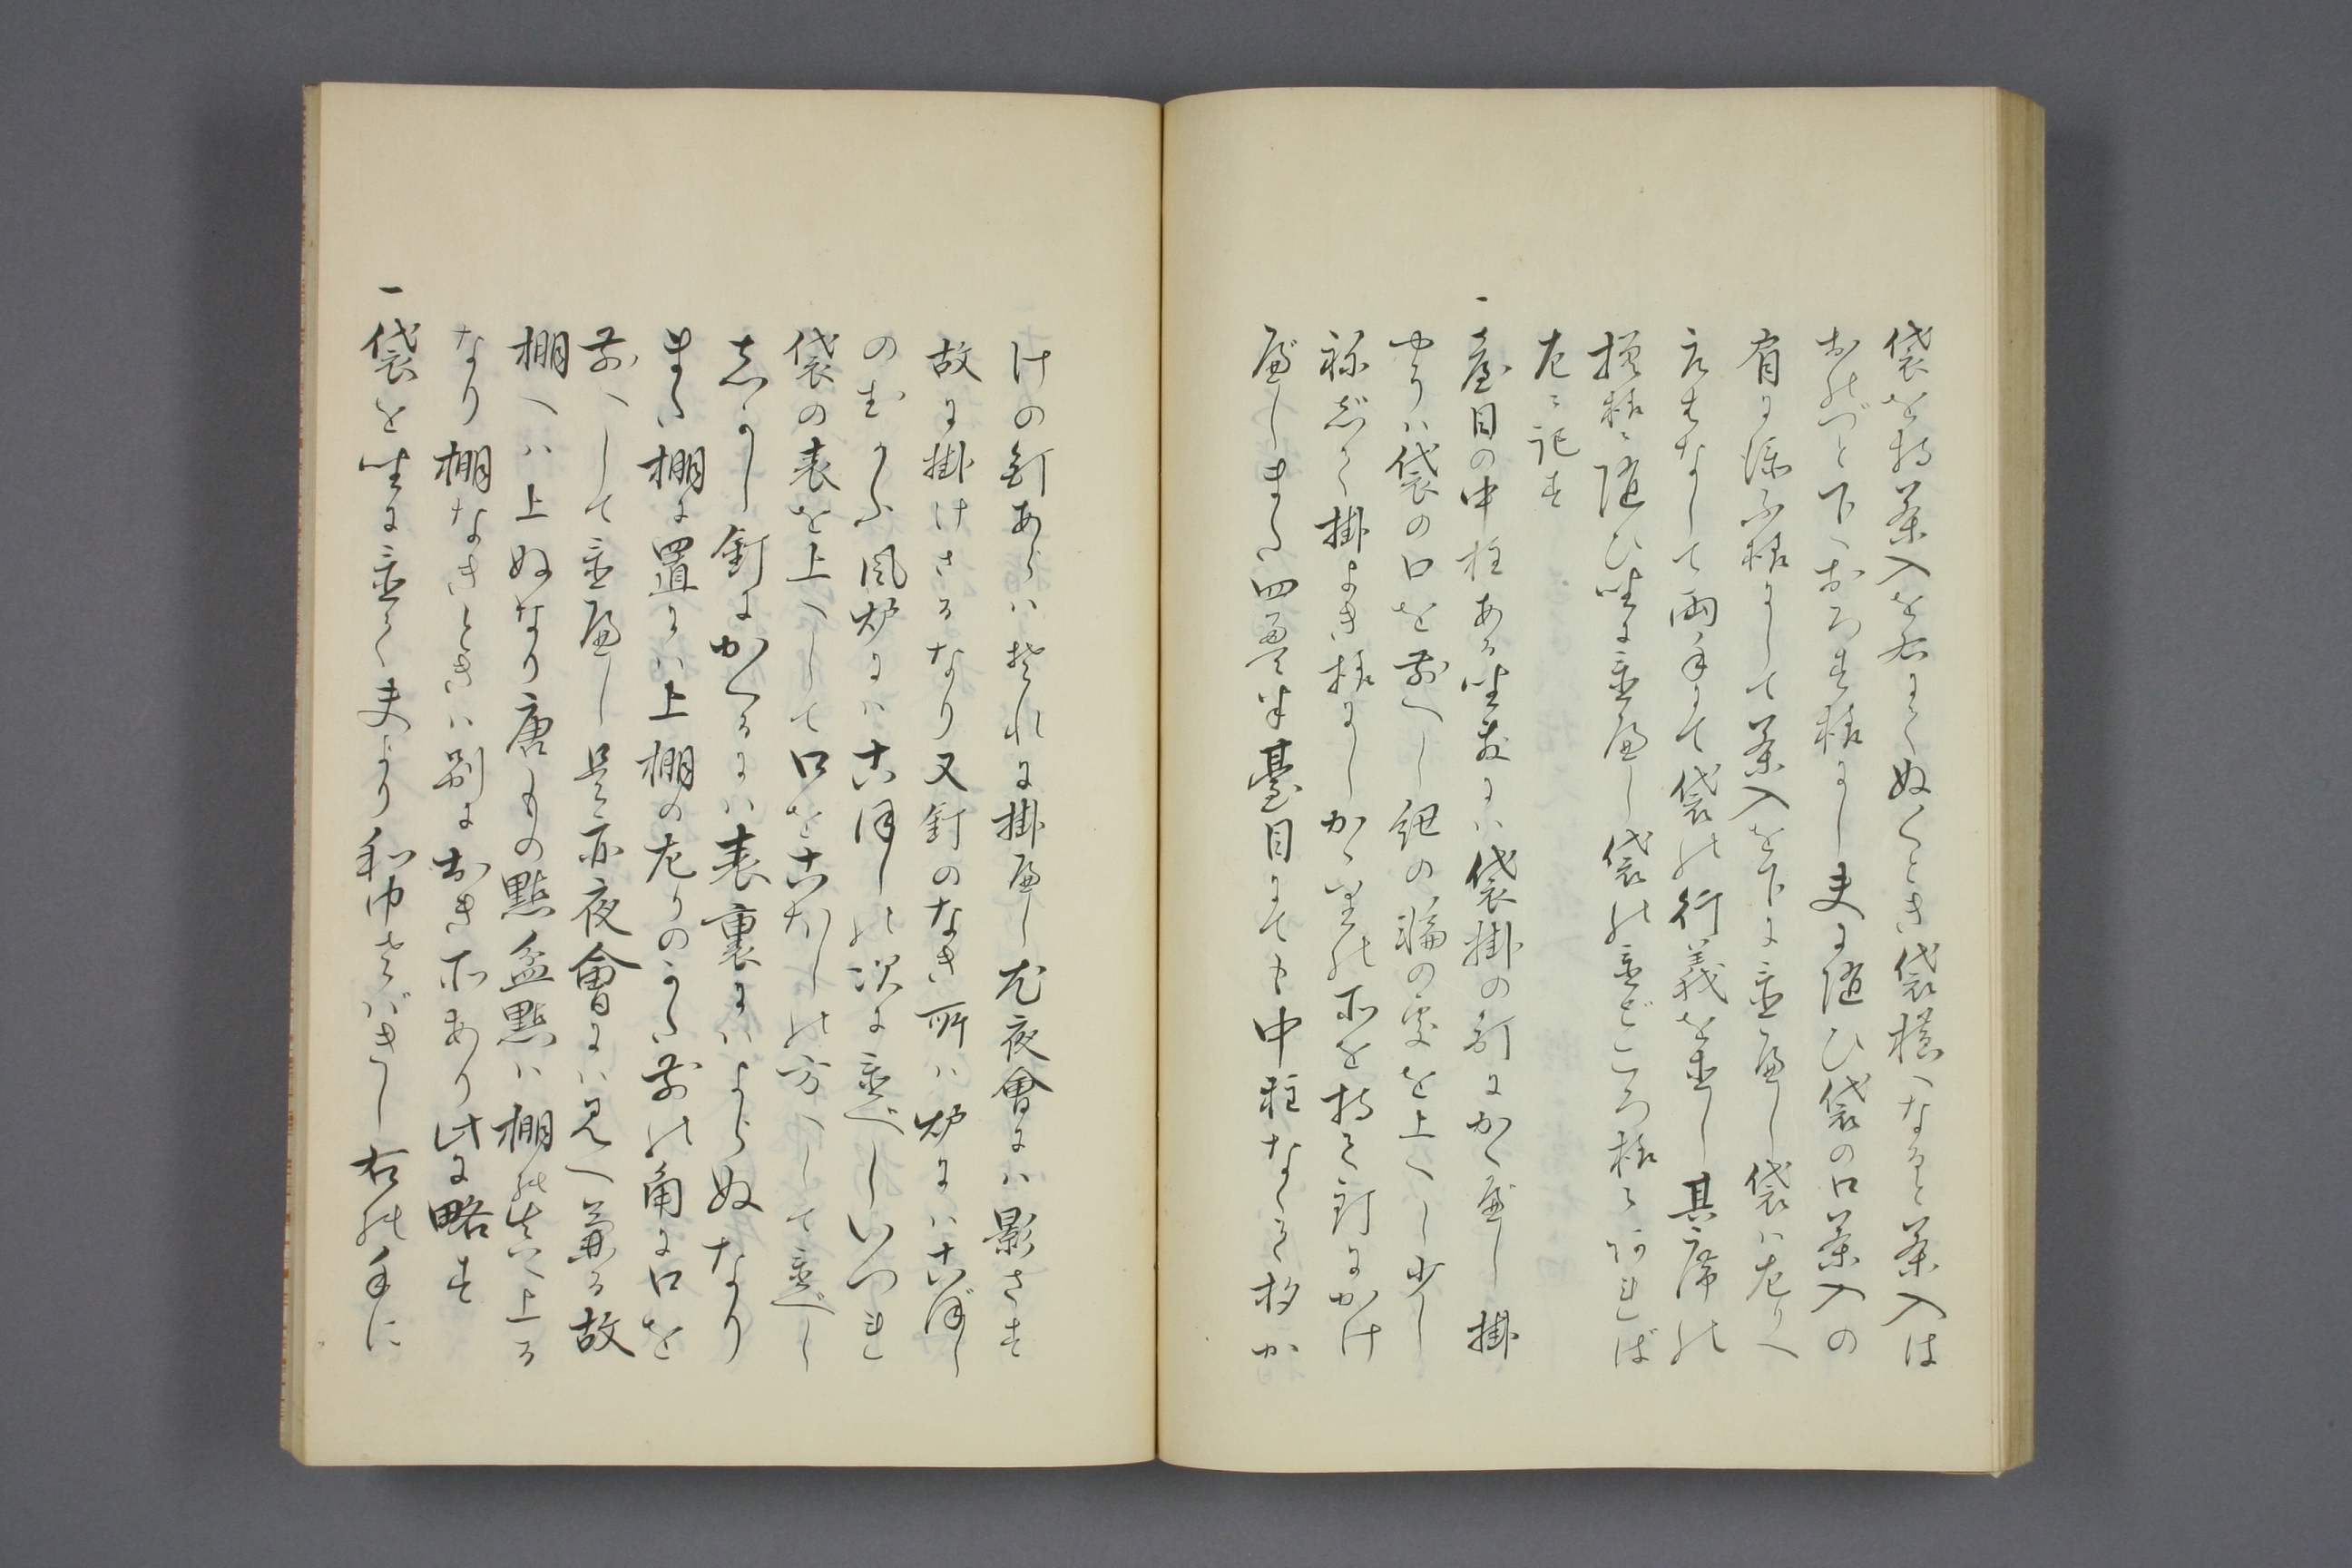 袋を持茶入を右にてぬくとき袋横へなると茶入は
おのづと下へおろす様にし夫に随ひ袋の口茶入の
有に添ふ様にして茶入を下に置べし袋は左りへ
なして両手にて袋の行義を直し其席の
模様ニ随ひ座に置べし袋の置どころ様々あれば
左ニ記す
一臺目の中柱ある座敷には袋掛の釘にかくべし掛
やうは袋の口を前へし紐の輪の処を上へし少し
ねぢて掛よき様にしかゝりの所を持て釘にかけ
べしまた四畳半臺目にても中柱なくて柱か
けの釘あらばそれに掛べし尤夜會には影さす
故に掛けざるなり又釘のなき所は炉にはこぼし
のむかふ風炉にはこぼしの次に置べしいづれ
袋の表を上へして口をこぼしの方へして置べし
しかし釘にかくるには表裏にはよらぬなり
また棚に置には上棚の左りのかた前の角に口を
前へして置べし是亦夜會には見へ兼る故
棚へは上ぬなり唐もの點盆點は棚の真へ上る
なり棚なきときは別におき所あり此に略す
一袋を座に置て夫より和巾さばきし右の手に